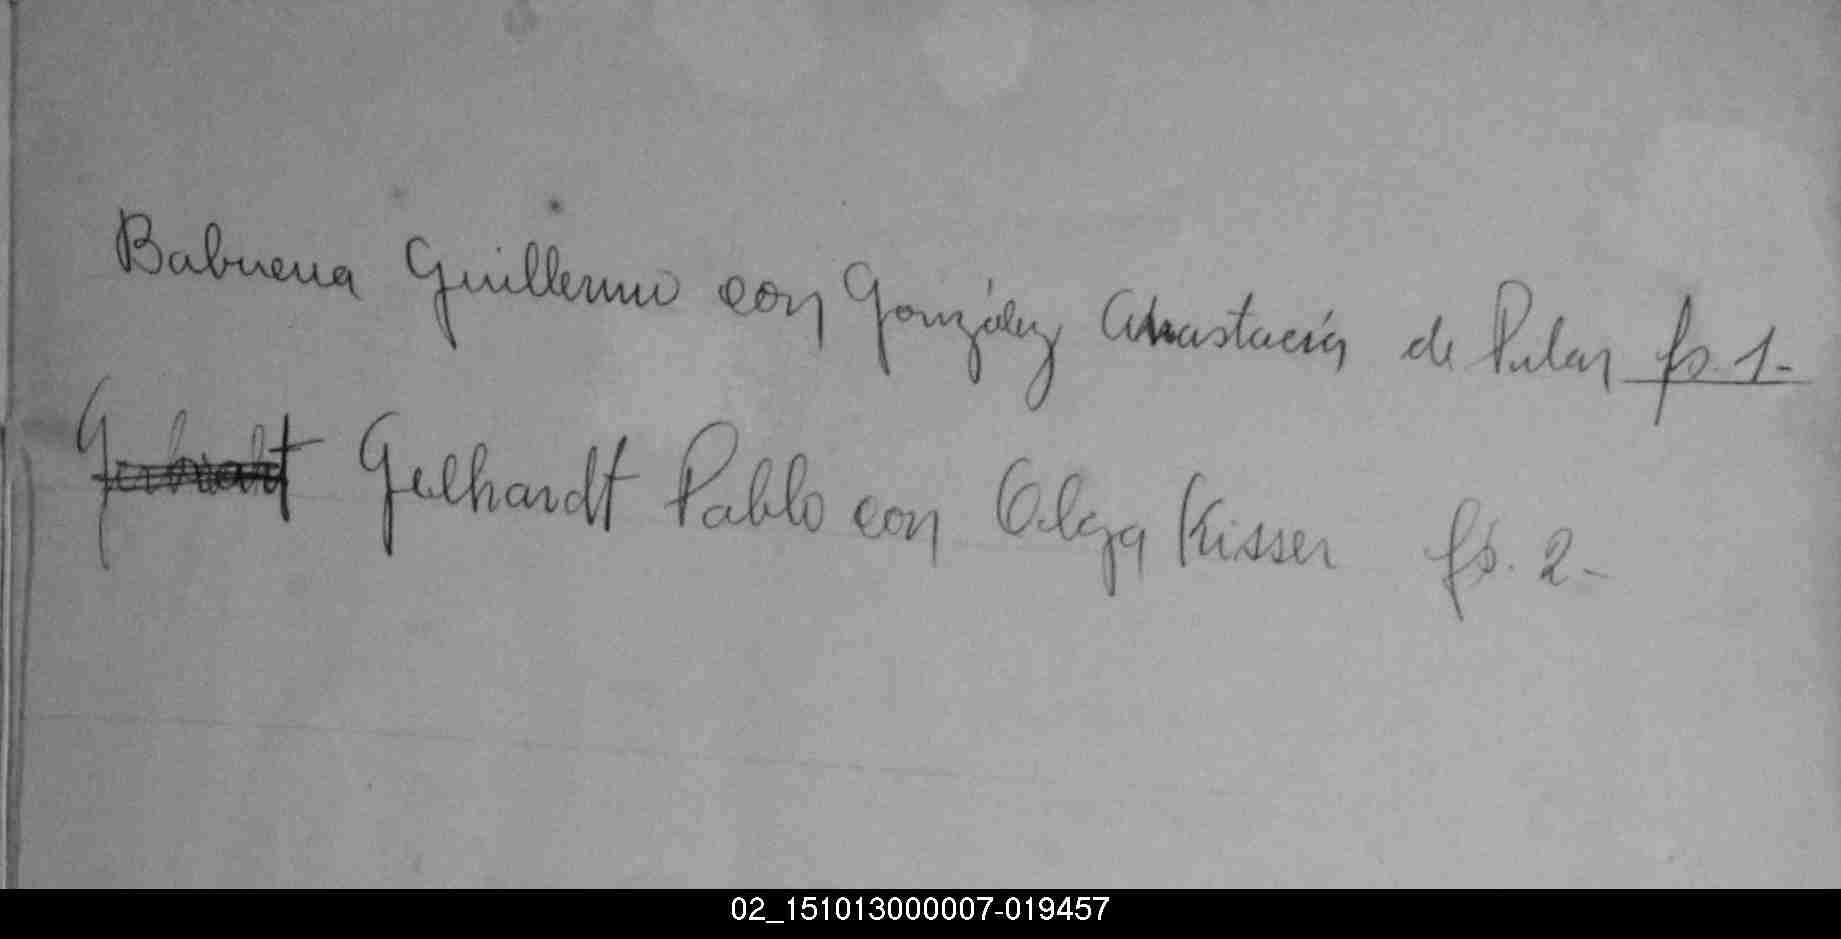 Babuena Guillermo con González Anastacia de Pilar fs. 1.-
Gelhardt Pablo con Olga Kisser fs. 2-
02_151013000007-019457